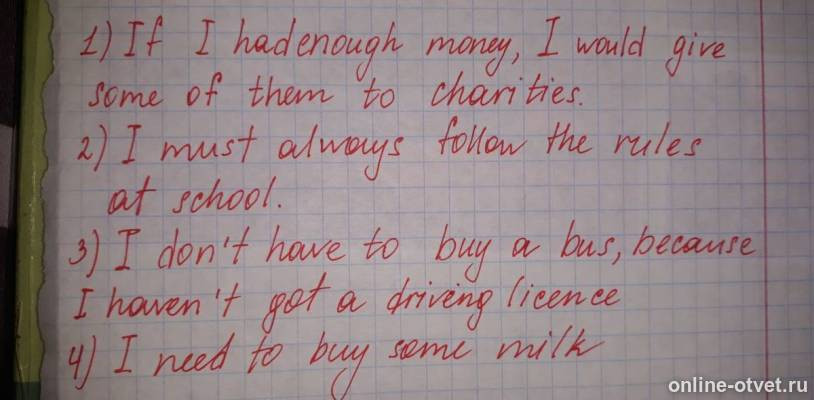 1) If I had enough money, I would give
some of them to charities.
2) I must always follow the rules
at school.
3) I don't have to buy a bus, because
I haven't got a driving licence
4) I need to buy some milk
online-otvet.ru